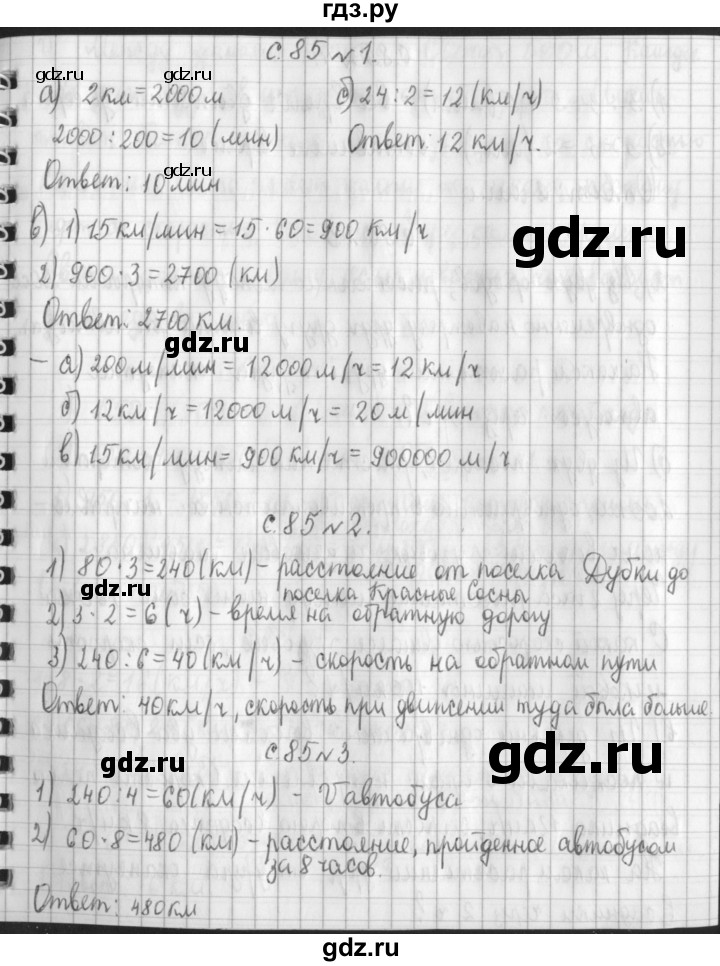 гдз.ру
с.85 №1.
gdz.ru gdz.ru
а) 2 км = 2000 м б) 24 : 2 = 12 (км/ч)
2000 : 200 = 10 (мин) Ответ: 12 км/ч.
gdz.ru
Ответ: 10 мин
в) 1) 15 км/мин = 15 · 60 = 900 км/ч
gdz.ru
2) 900 · 3 = 2700 (км)
Ответ: 2700 км.
gdz.ru
– а) 200 м/мин = 12000 м/ч = 12 км/ч
б) 12 км/ч = 12000 м/ч = 20 м/мин
в) 15 км/мин = 900 км/ч = 900000 м/ч
с.85 №2.
1) 80 · 3 = 240 (км) – расстояние от поселка Дубки до
поселка Красные Сосны
gdz.ru
2) 3 · 2 = 6 (ч) – время на обратную дорогу
3) 240 : 6 = 40 (км/ч) – скорость на обратном пути
Ответ: 40 км/ч, скорость при движении туда была больше.
с.85 №3.
gdz.ru
gdz.ru
1) 240 : 4 = 60 (км/ч) – V автобуса
2) 60 · 8 = 480 (км) – расстояние, пройденное автобусом
за 8 часов.
Ответ: 480 км
gdz.ru
gdz.ru